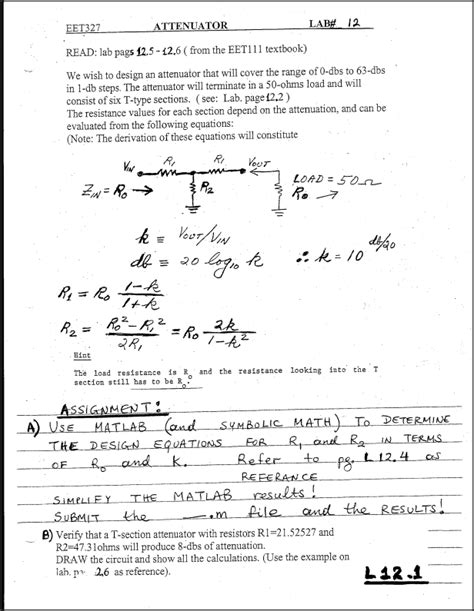 EET327 ATTENUATOR LAB# 12
READ: lab pags 12.5 - 12.6 ( from the EET111 textbook)
We wish to design an attenuator that will cover the range of 0-dbs to 63-dbs
in 1-db steps. The attenuator will terminate in a 50-ohms load and will
consist of six T-type sections. ( see: Lab. page 12.2 )
The resistance values for each section depend on the attenuation, and can be
evaluated from the following equations:
(Note: The derivation of these equations will constitute
VIN R1 R1 VOUT
ZIN = R0 → R2 LOAD = 50Ω
R0 →
k ≡ VOUT/VIN
db ≡ 20 log10 k ∴ k = 10^db/20
R1 = R0 (1-k)/(1+k)
R2 = (R0² - R1²)/(2R1) = R0 2k/(1-k²)
Hint
The load resistance is R0 and the resistance looking into the T
section still has to be R0.
ASSIGNMENT:
A) USE MATLAB (and SYMBOLIC MATH) TO DETERMINE
THE DESIGN EQUATIONS FOR R1 and R2 IN TERMS
OF R0 and K. Refer to pg. L12.4 as
REFERANCE
SIMPLIFY THE MATLAB results!
SUBMIT the .m file and the RESULTS!
B) Verify that a T-section attenuator with resistors R1=21.52527 and
R2=47.31ohms will produce 8-dbs of attenuation.
DRAW the circuit and show all the calculations. (Use the example on
lab. 2.6 as reference).
L12.1